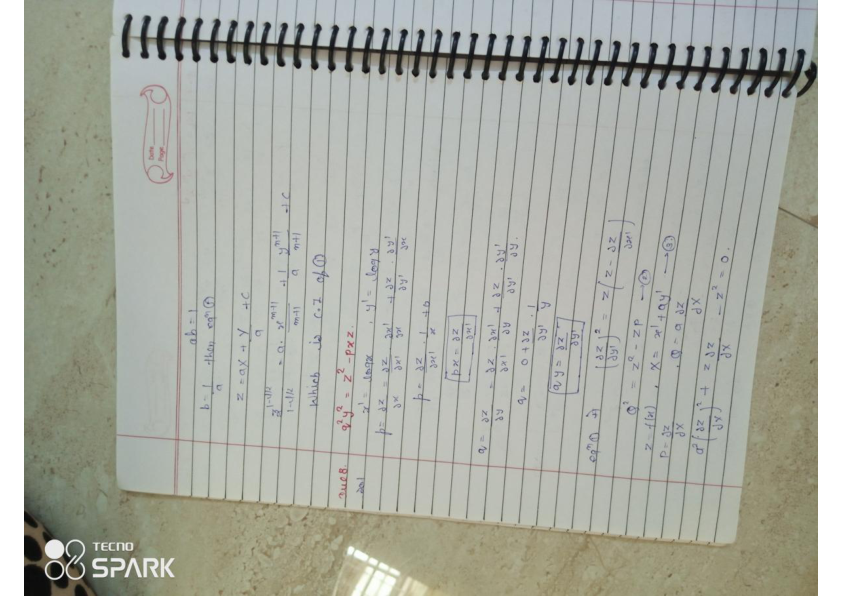 Date
Page
ab = 1
b = 1/a then eqn ①
Z = ax + y/a + C
z^(1-1/2)/(1-1/2) = a. x^(m+1)/(m+1) + 1/a y^(n+1)/(n+1) + C
which is C.I of ①
q²y² = z² - pxz.
x' = logx , y' = logy
p = ∂z/∂x = ∂z/∂x' . ∂x'/∂x + ∂z/∂y' . ∂y'/∂x
p = ∂z/∂x' . 1/x + 0
px = ∂z/∂x'
q = ∂z/∂y = ∂z/∂x' . ∂x'/∂y + ∂z/∂y' . ∂y'/∂y.
q = 0 + ∂z/∂y' . 1/y
qy = ∂z/∂y'
eqn ① ⇒ (∂z/∂y')² = z(z - ∂z/∂x')
Q² = z² - zP —②
z = f(x) , X = x' + ay' —③
P = ∂z/∂x , Q = a ∂z/∂x
a²(∂z/∂x)² + z ∂z/∂x - z² = 0.
TECNO
SPARK